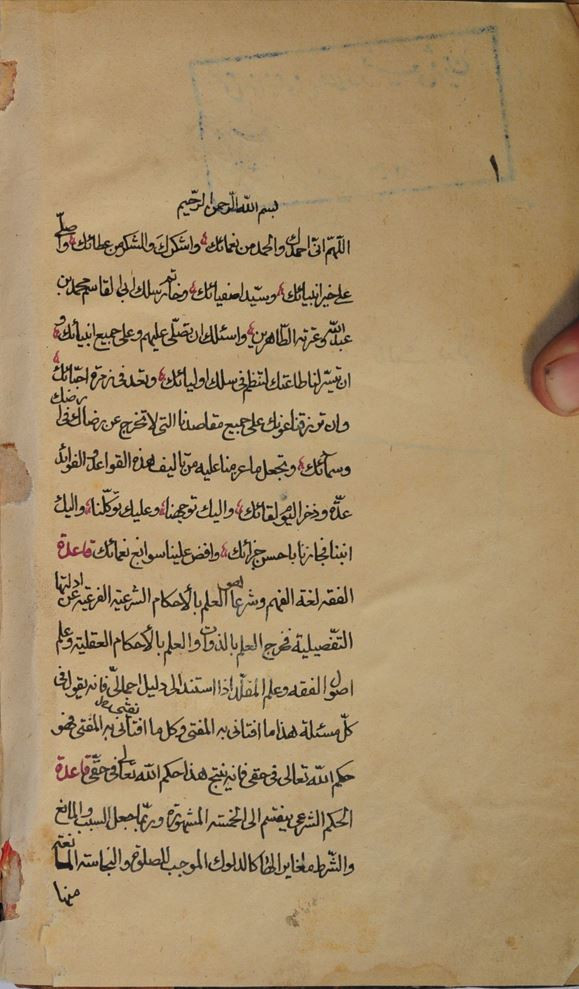 ١
بسم الله الرحمن الرحيم
اللهم انى احمدك والحمد من نعمائك واشكرك والشكر من عطائك واصلى
على خير انبيائك وسيد اصفيائك وخاتم رسلك ابى القاسم محمد بن
عبد الله وعترته الطاهرين واسئلك ان تصلى عليهم وعلى جميع انبيائك و
ان تيسر لنا طاعتك لننتظم فى سلك اوليائك ونتحد فى زمرة احبائك
وان ترزقنا عونك على جميع مقاصدنا التى لا تخرج عن رضاك فى ارضك
وسمائك وتجعل ما عزمنا عليه من تاليف هذه القواعد والفوائد
عدة وذخرا ليوم لقائك واليك توجهنا وعليك توكلنا واليك
انبنا فجازنا باحسن جزائك وافض علينا سوابغ نعمائك قاعدة
الفقه لغة الفهم وشرعا هو العلم بالأحكام الشرعية الفرعية عن ادلتها
التفصيلية فخرج العلم بالذوات والعلم بالأحكام العقلية وعلم
اصول الفقه وعلم المقلد اذا استند الى دليل اجمالى فانه يقول فى
كل مسئلة هذا ما افتانى به المفتى وكل ما افتانى به المفتى فهو
حكم الله تعالى فى حقى فانه ينتج هذا حكم الله تعالى فى حقى قاعدة
الحكم الشرعى ينقسم الى الخمسة المشهورة وربما جعل السبب والمانع
والشرط مغايرا لها كالدلوك الموجب للصلوة والنجاسة المانعة
منها